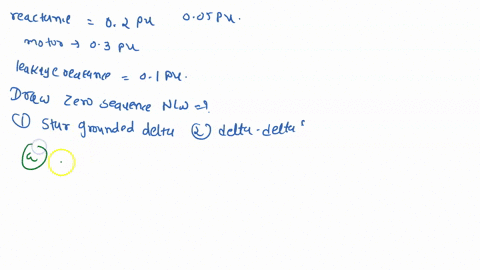 reactance = 0.2 PU 0.05 PU.
motor → 0.3 PU
leakage reactance = 0.1 PU.
Draw zero sequence N/W = ?
① Star grounded delta ② delta-delta
ⓐ .